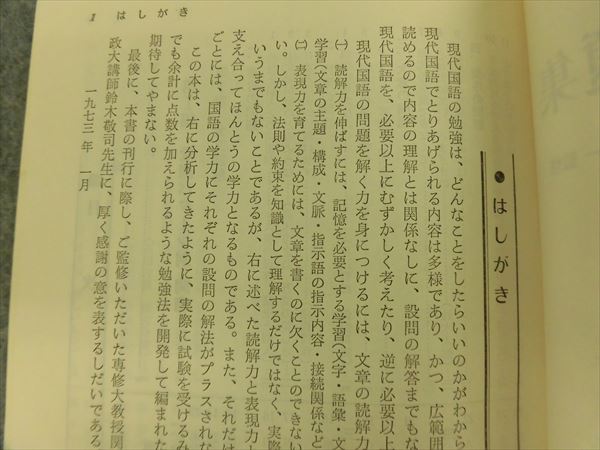 ●はしがき
現代国語の勉強は、どんなことをしたらいいのかがわから
現代国語でとりあげられる内容は多様であり、かつ、広範囲
読めるので内容の理解とは関係なしに、設問の解答までもな
現代国語を、必要以上にむずかしく考えたり、逆に必要以上
現代国語の問題を解く力を身につけるには、文章の読解力
㈠ 読解力を伸ばすには、記憶を必要とする学習(文字・語彙・文
学習(文章の主題・構成・文脈・指示語の指示内容・接続関係など
㈡ 表現力を育てるためには、文章を書くのに欠くことのできない
い。しかし、法則や約束を知識として理解するだけではなく、実際
いうまでもないことであるが、右に述べた読解力と表現力と
支え合ってほんとうの学力となるものである。また、それだけ
ごとには、国語の学力にそれぞれの設問の解法がプラスされな
この本は、右に分析してきたように、実際に試験を受けるみ
でも余計に点数を加えられるような勉強法を開発して編まれた
期待してやまない。
最後に、本書の刊行に際し、ご監修いただいた専修大教授関
政大講師鈴木敬司先生に、厚く感謝の意を表するしだいである
一九七三年 一月
1 はしがき